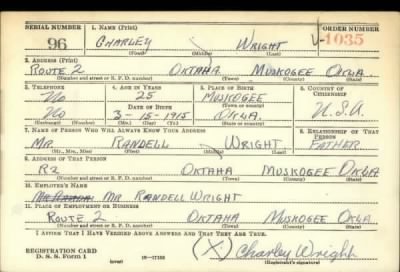 SERIAL NUMBER 1. NAME (Print) ORDER NUMBER
96 CHARLEY WRIGHT V-1035
(First) (Middle) (Last)
2. ADDRESS (Print)
ROUTE 2 OKTAHA MUSKOGEE OKLA.
(Number and street or R. F. D. number) (Town) (County) (State)
3. TELEPHONE 4. AGE IN YEARS 5. PLACE OF BIRTH 6. COUNTRY OF CITIZENSHIP
No 25 MUSKOGEE
DATE OF BIRTH (Town or county)
No 3-15-1915 OKLA. U.S.A.
(Exchange) (Number) (Mo.) (Day) (Yr.) (State or country)
7. NAME OF PERSON WHO WILL ALWAYS KNOW YOUR ADDRESS 8. RELATIONSHIP OF THAT PERSON
MR. RANDELL WRIGHT FATHER
(Mr., Mrs., Miss) (First) (Middle) (Last)
9. ADDRESS OF THAT PERSON
R2 OKTAHA MUSKOGEE OKLA
(Number and street or R. F. D. number) (Town) (County) (State)
10. EMPLOYER'S NAME
MR RANDELL WRIGHT
11. PLACE OF EMPLOYMENT OR BUSINESS
ROUTE 2 OKTAHA MUSKOGEE OKLA.
(Number and street or R. F. D. number) (Town) (County) (State)
I AFFIRM THAT I HAVE VERIFIED ABOVE ANSWERS AND THAT THEY ARE TRUE.
REGISTRATION CARD (X) Charley Wright
D. S. S. Form 1 (over) 16—17105 (Registrant's signature)